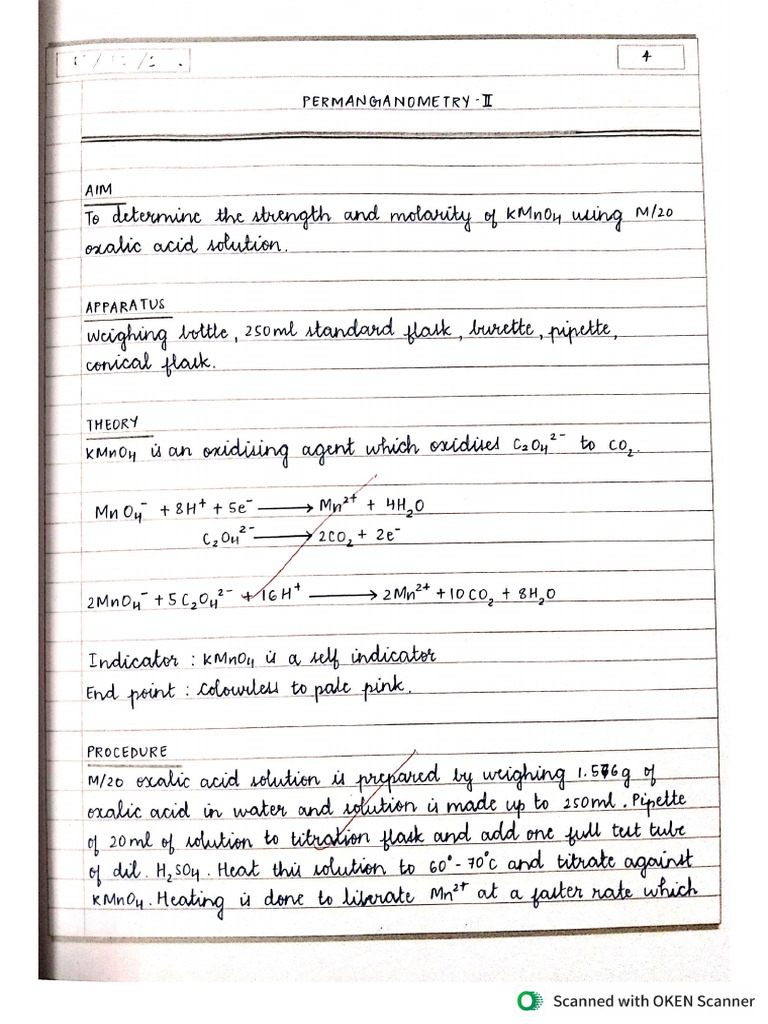 4
PERMANGANOMETRY - II
AIM
To determine the strength and molarity of KMnO4 using M/20
oxalic acid solution.
APPARATUS
Weighing bottle, 250ml standard flask, burette, pipette,
conical flask.
THEORY
KMnO4 is an oxidising agent which oxidises C₂O₄²⁻ to CO₂.
MnO₄⁻ + 8H⁺ + 5e⁻ ⟶ Mn²⁺ + 4H₂O
C₂O₄²⁻ ⟶ 2CO₂ + 2e⁻
2MnO₄⁻ + 5C₂O₄²⁻ + 16H⁺ ⟶ 2Mn²⁺ + 10CO₂ + 8H₂O
Indicator : KMnO4 is a self indicator
End point : Colourless to pale pink.
PROCEDURE
M/20 oxalic acid solution is prepared by weighing g of
oxalic acid in water and solution is made up to 250ml. Pipette
of 20ml of solution to titration flask and add one full test tube
of dil. H₂SO₄. Heat this solution to 60°-70°C and titrate against
KMnO4. Heating is done to liberate Mn²⁺ at a faster rate which
Scanned with OKEN Scanner